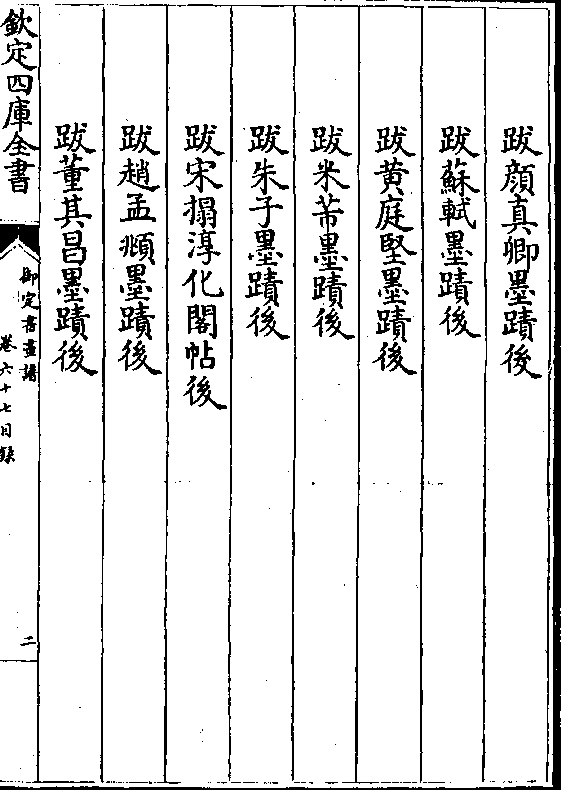 跋顔真卿墨蹟後
跋蘇軾墨蹟後
跋黄庭堅墨蹟後
跋米芾墨蹟後
跋朱子墨蹟後
跋宋搨淳化閣帖後
跋趙孟頫墨蹟後
跋董其昌墨蹟後
欽定四庫全書
御定書畫譜
卷六十七目録
二